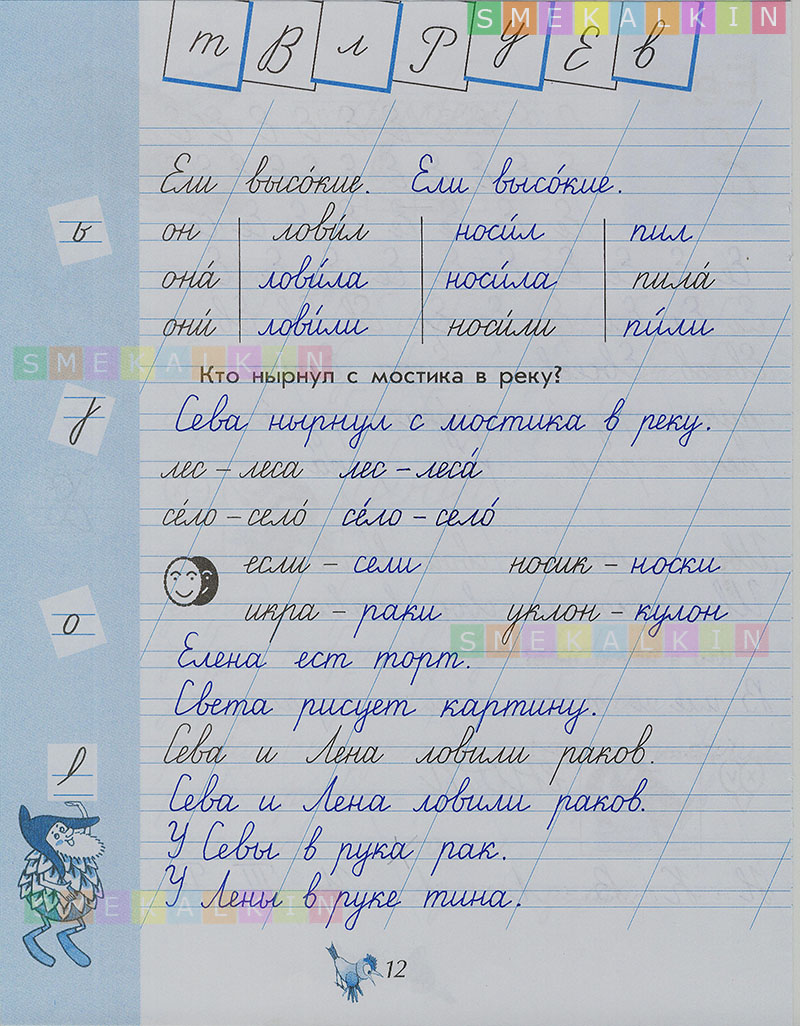 SMEKALKIN
т В л Р У Е в
Ели высо́кие. Ели высо́кие.
он лови́л носи́л пил
она́ лови́ла носи́ла пила́
они́ лови́ли носи́ли пи́ли
SMEKALKIN
Кто нырнул с мостика в реку?
Сева нырнул с мостика в реку.
лес – леса лес – леса́
се́ло – село́ се́ло – село́
если – сели носик – носки
икра – раки уклон – кулон
о
SMEKALKIN
Елена ест торт.
Света рисует картину.
Сева и Лена ловили раков.
Сева и Лена ловили раков.
У Севы в рука рак.
У Лены в руке тина.
SMEKALKIN
12